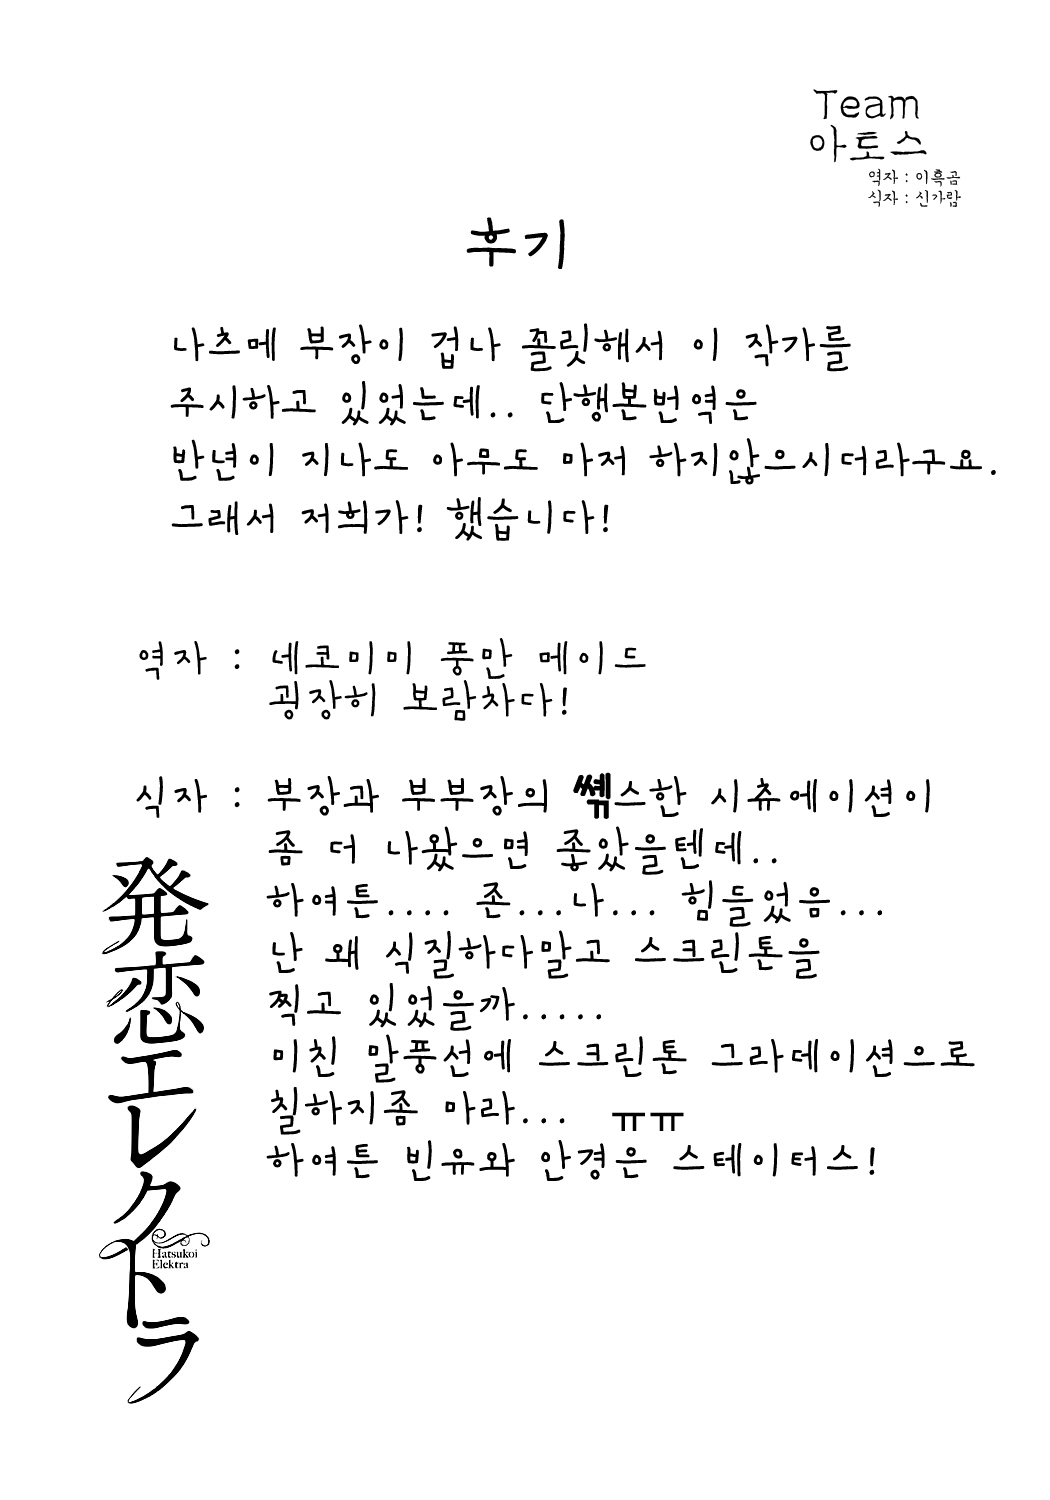 Team
아토스
역자 : 이흑곰
식자 : 신가람
후기
나츠메 부장이 겁나 꼴릿해서 이 작가를
주시하고 있었는데.. 단행본번역은
반년이 지나도 아무도 마저 하지않으시더라구요.
그래서 저희가! 했습니다!
역자 : 네코미미 풍만 메이드
굉장히 보람차다!
식자 : 부장과 부부장의 쎾스한 시츄에이션이
좀 더 나왔으면 좋았을텐데..
하여튼.... 존...나... 힘들었음...
난 왜 식질하다말고 스크린톤을
찍고 있었을까.....
미친 말풍선에 스크린톤 그라데이션으로
칠하지좀 마라... ㅠㅠ
하여튼 빈유와 안경은 스테이터스!
発恋エレクトラ
Hatsukoi
Elektra